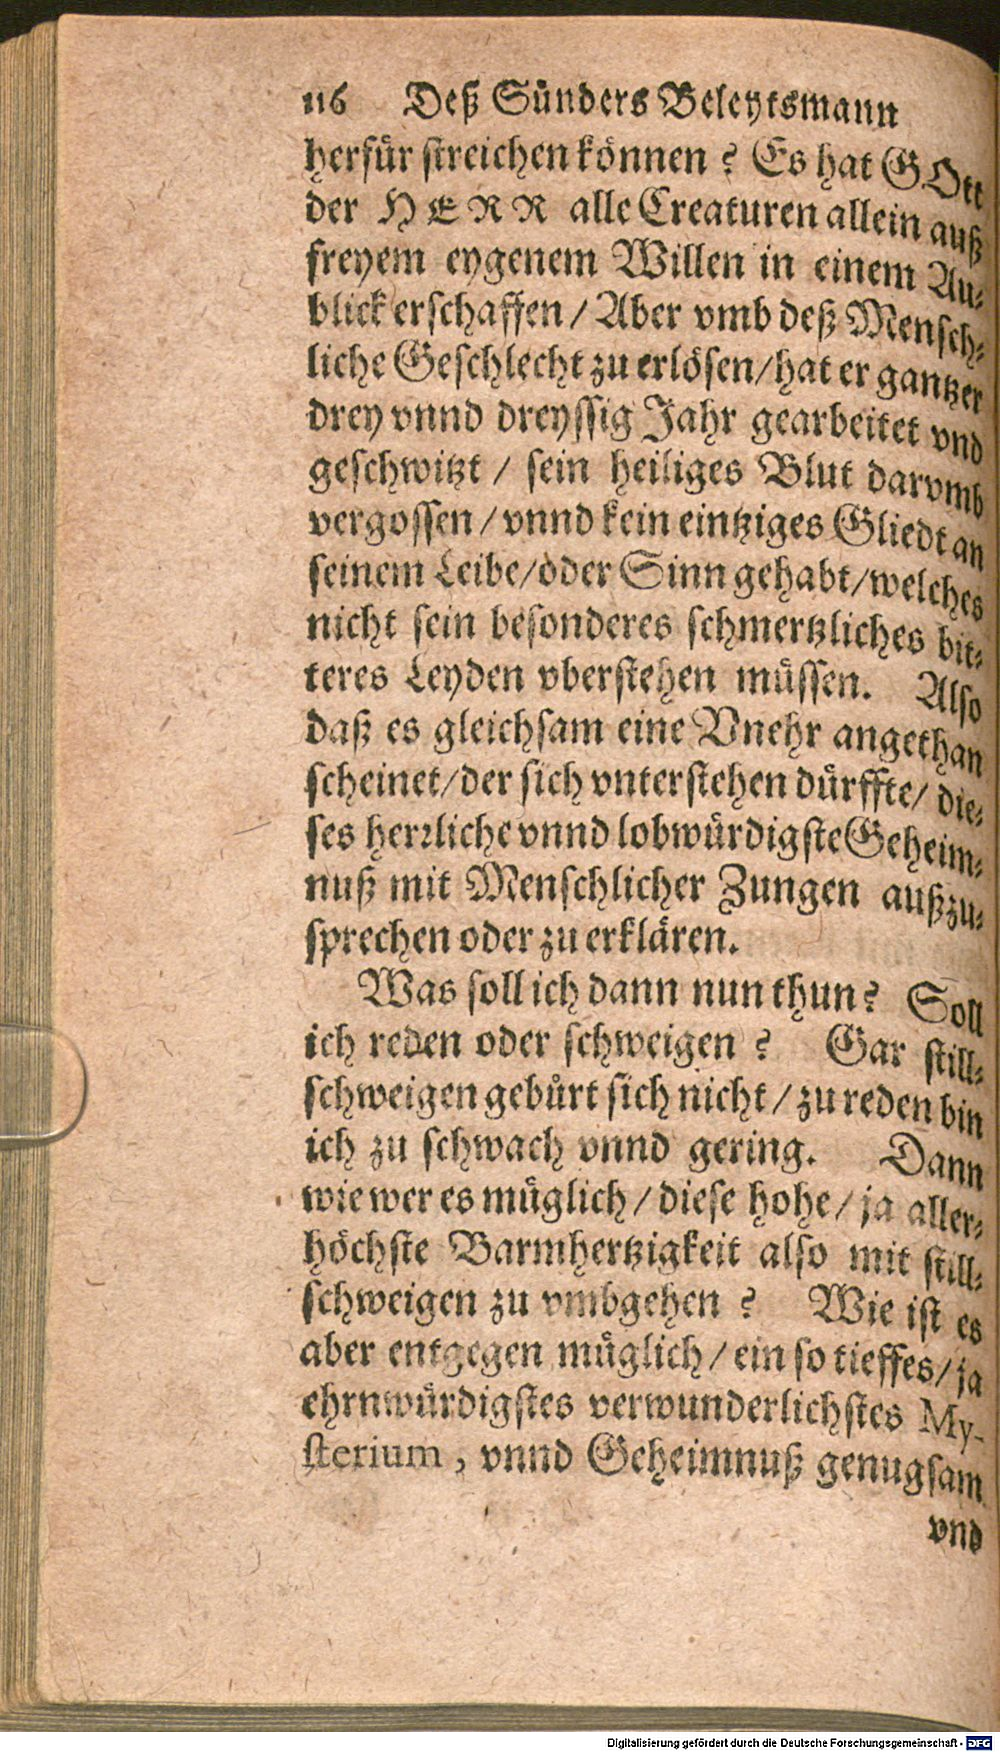 116 Deß Sünders Beleytsmann
herfür streichen können? Es hat GOtt
der HERR alle Creaturen allein auß
freyem eygenem Willen in einem Au-
blick erschaffen / Aber vmb deß Mensch-
liche Geschlecht zu erlösen / hat er gantzer
drey vnnd dreyssig Jahr gearbeitet vnd
geschwitzt / sein heiliges Blut darvmb
vergossen / vnnd kein eintziges Gliedt an
seinem Leibe / oder Sinn gehabt / welches
nicht sein besonderes schmertzliches bit-
teres Leyden vberstehen müssen. Also
daß es gleichsam eine Vnehr angethan
scheinet / der sich vnterstehen dürffte / die-
ses herrliche vnnd lobwürdigste Geheim-
nuß mit Menschlicher Zungen außzu-
sprechen oder zu erklären.
Was soll ich dann nun thun? Soll
ich reden oder schweigen? Gar still-
schweigen gebürt sich nicht / zu reden bin
ich zu schwach vnnd gering. Dann
wie wer es müglich / diese hohe / ja aller-
höchste Barmhertzigkeit also mit still-
schweigen zu vmbgehen? Wie ist es
aber entgegen müglich / ein so tieffes / ja
ehrnwürdigstes verwunderlichstes My-
sterium, vnnd Geheimnuß genugsam
vnd
Digitalisierung gefördert durch die Deutsche Forschungsgemeinschaft - DFG